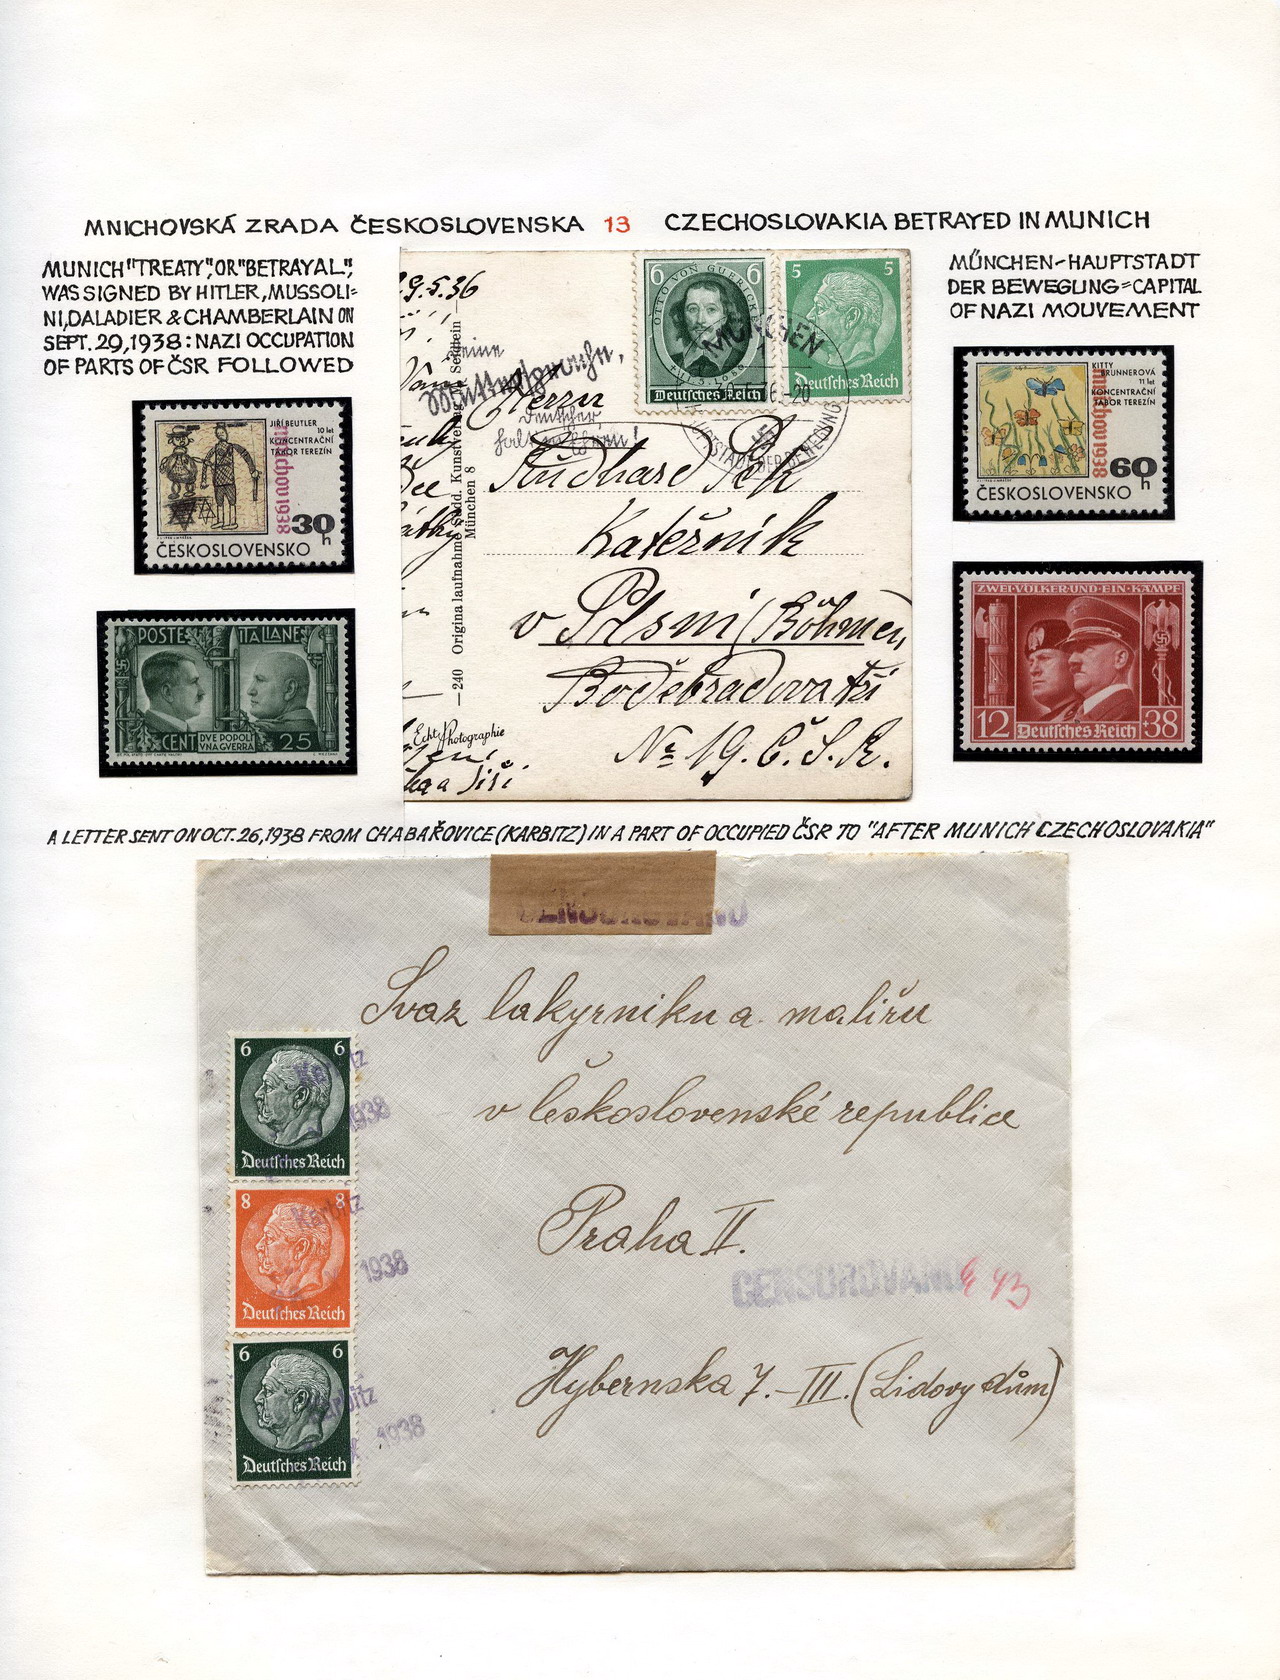 MNICHOVSKÁ ZRADA ČESKOSLOVENSKA 13 CZECHOSLOVAKIA BETRAYED IN MUNICH
MUNICH "TREATY", OR "BETRAYAL",
WAS SIGNED BY HITLER, MUSSOLI-
NI, DALADIER & CHAMBERLAIN ON
SEPT. 29, 1938: NAZI OCCUPATION
OF PARTS OF ČSR FOLLOWED
MŰNCHEN-HAUPTSTADT
DER BEWEGUNG = CAPITAL
OF NAZI MOUVEMENT
JIŘÍ BEUTLER
10 let
KONCENTRAČNÍ
TÁBOR TEREZÍN
mnichov 1938
30 h
ČESKOSLOVENSKO
POSTE ITALIANE
CENT DVE POPOLI 25
VNA GVERRA
29.5.36
6 OTTO VON GUERICKE 6
Deutsches Reich
5 5
Deutsches Reich
MÜNCHEN
HAUPTSTADT DER BEWEGUNG
Muttersprache,
Deutscher
Herrn
v Plsni (Böhmen)
No 19. Č. S. R.
—240 Original aufnahme Südd. Kunstverlag
München 8
Echte Photographie
a Jiří
KITTY
BRUNNEROVÁ
11 let
KONCENTRAČNÍ
TÁBOR TEREZÍN
mnichov 1938
60 h
ČESKOSLOVENSKO
ZWEI·VÖLKER·UND·EIN·KAMPF
12 Deutsches Reich 38
A LETTER SENT ON OCT. 26, 1938 FROM CHABAŘOVICE (KARBITZ) IN A PART OF OCCUPIED ČSR TO "AFTER MUNICH CZECHOSLOVAKIA"
CENSUROVÁNO
Svaz lakyrniku a maliřu
v československé republice
Praha II.
CENSUROVÁNO
Hybernska 7.-III. (Lidovy dům)
6 6
Deutsches Reich
Karbitz
1938
8 8
Deutsches Reich
Karbitz
1938
6 6
Deutsches Reich
Karbitz
1938